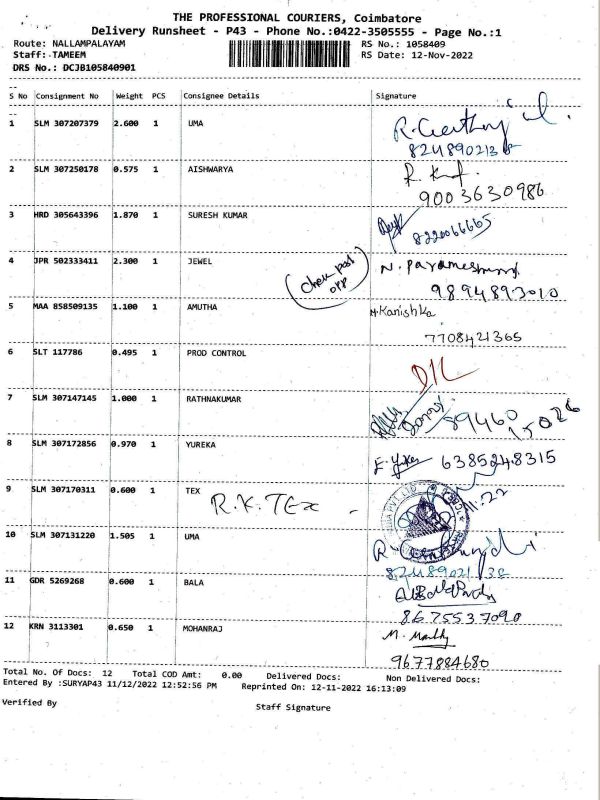 THE PROFESSIONAL COURIERS, Coimbatore
Delivery Runsheet - P43 - Phone No.:0422-3505555 - Page No.:1
Route: NALLAMPALAYAM RS No.: 1058409
Staff: TAMEEM RS Date: 12-Nov-2022
DRS No.: DCJB105840901
S No Consignment No Weight PCS Consignee Details Signature
1 SLM 307207379 2.600 1 UMA
2 SLM 307250178 0.575 1 AISHWARYA
9003630986
3 HRD 305643396 1.870 1 SURESH KUMAR
8220066665
4 JPR 502333411 2.300 1 JEWEL
9894893010
5 MAA 858509135 1.100 1 AMUTHA Kanishka
7708421365
6 SLT 117786 0.495 1 PROD CONTROL
7 SLM 307147145 1.000 1 RATHNAKUMAR
89460
15026
8 SLM 307172856 0.970 1 YUREKA
6385248315
9 SLM 307170311 0.600 1 TEX
R.K.TEX -
10 SLM 307131220 1.505 1 UMA
11 GDR 5269268 0.600 1 BALA
8675537090
12 KRN 3113301 0.650 1 MOHANRAJ
9677884680
Total No. Of Docs: 12 Total COD Amt: 0.00 Delivered Docs: Non Delivered Docs:
Entered By :SURYAP43 11/12/2022 12:52:56 PM Reprinted On: 12-11-2022 16:13:09
Verified By
Staff Signature